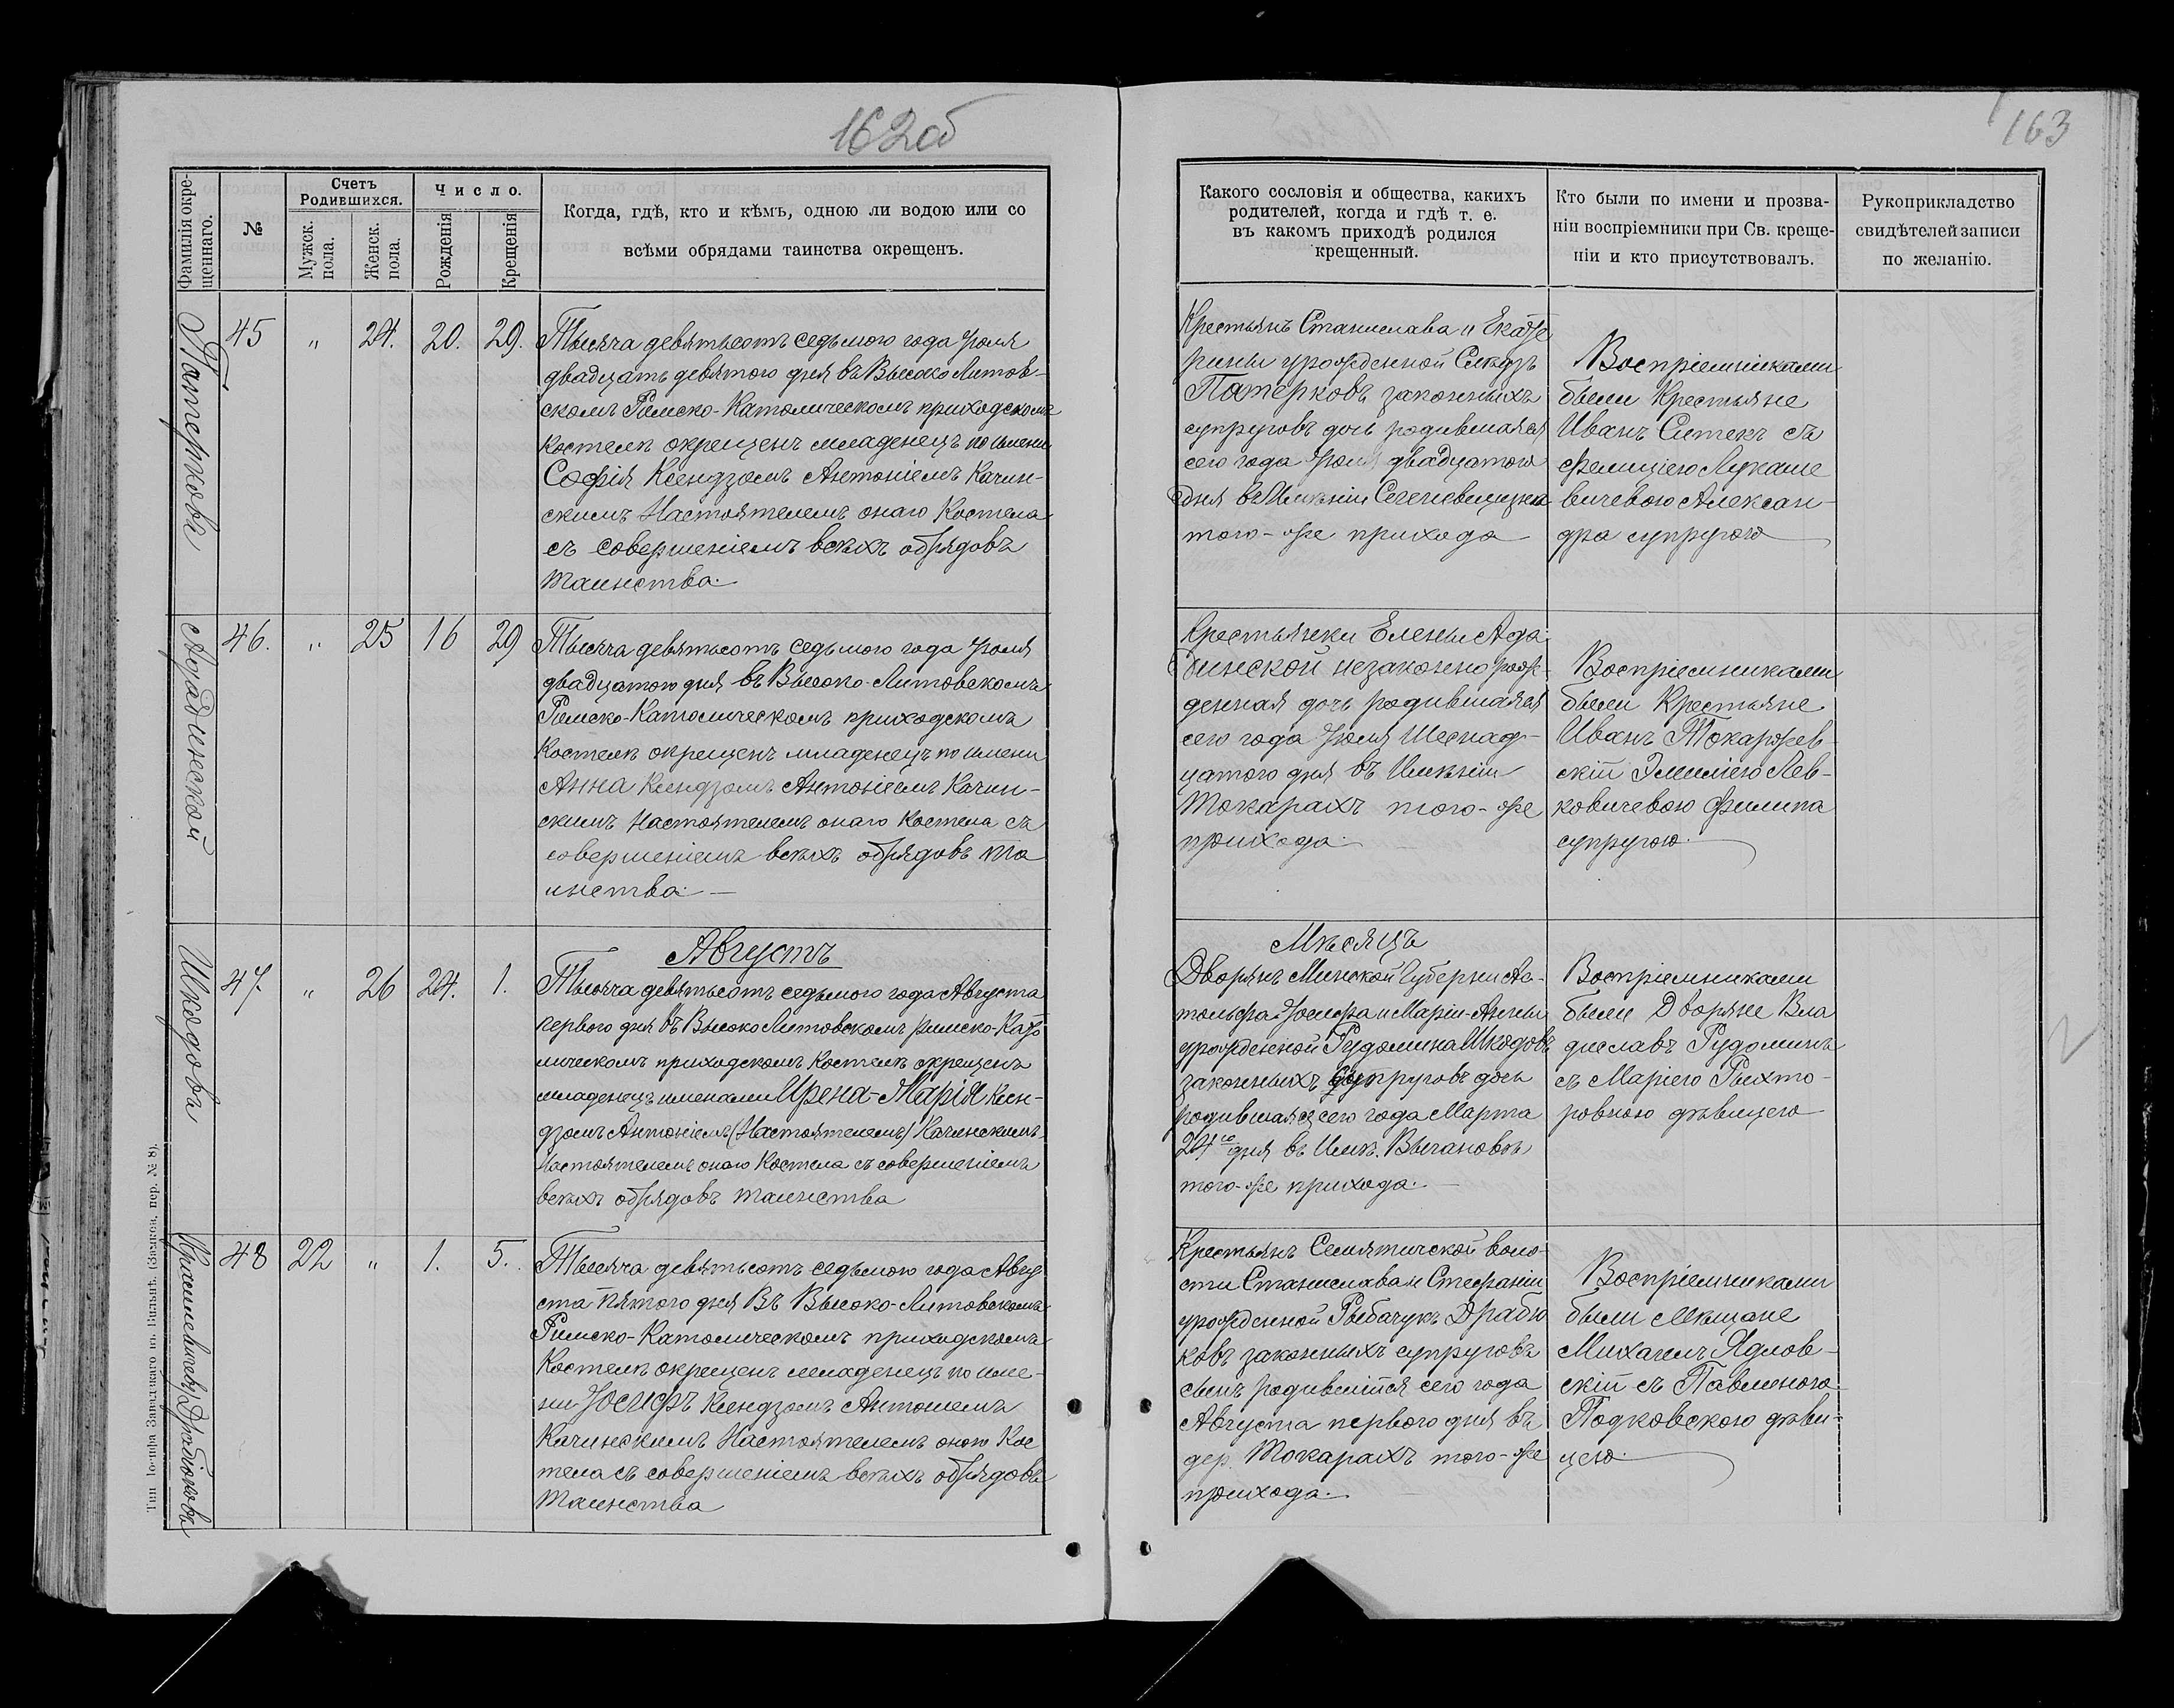 162об
163
Фамилія окре-
щеннаго.
№
Счетъ
Родившихся.
Мужск.
пола.
Женск.
пола.
Число.
Рожденія
Крещенія
Когда, гдѣ, кто и кѣмъ, одною ли водою или со
всѣми обрядами таинства окрещенъ.
Какого сословія и общества, какихъ
родителей, когда и гдѣ т. е.
въ какомъ приходѣ родился
крещенный.
Кто были по имени и прозва-
ніи воспріемники при Св. креще-
ніи и кто присутствовалъ.
Рукоприкладство
свидѣтелей записи
по желанію.
Патеркова
45 " 24. 20. 29.
Тысяча девятьсотъ седьмого года Іюля
двадцать девятого дня въ Высоко Литов-
скомъ Римско-Католическомъ приходскомъ
Костелѣ окрещенъ младенецъ по имени
Софія Ксендзомъ Антоніемъ Качин-
скимъ Настоятелемъ онаго Костела
съ совершеніемъ всѣхъ обрядовъ
таинства.
Крестьянъ Станислава и Екате
рины урожденной
Патерковъ законныхъ
супруговъ дочь родившаяся
сего года Іюля двадцатого
дня въ Имѣніи
того-же прихода
Воспріемниками
были Крестьяне
Иванъ Ситекъ съ
Фелиціею Лукаше
вичевою Алексан-
дра супругою
Ададинской
46. " 25 16 29
Тысяча девятьсотъ седьмого года Іюля
двадцатого дня въ Высоко-Литовскомъ
Римско-Католическомъ приходскомъ
Костелѣ окрещенъ младенецъ по имени
Анна Ксендзомъ Антоніемъ Качин-
скимъ Настоятелемъ онаго Костела съ
совершеніемъ всѣхъ обрядовъ та
инства.
Крестьянки Елены Ада-
динской незаконно рож-
денная дочь родившаяся
сего года Іюля Шеснад-
цатого дня въ Имѣніи
Токарахъ того-же
прихода.
Воспріемниками
были Крестьяне
Иванъ Токаржев-
скій Эмиліею Лев-
ковичевою Филипа
супругою.
Августъ
Мѣсяцъ
Шкодова
47. " 26 24. 1.
Тысяча девятьсотъ седьмого года Августа
первого дня въ Высоко Литовскомъ Римско-Като
лическомъ приходскомъ Костелѣ окрещенъ
младенецъ именами Ирена-Марія Ксен-
дзомъ Антоніемъ (Настоятелемъ) Качинскимъ
Настоятелемъ онаго Костела съ совершеніемъ
всѣхъ обрядовъ таинства
Дворянъ Минской Губерніи Ас-
тольфа Іосифа и Маріи-Анны
урожденной Рудомина Шкодовъ
законныхъ супруговъ дочь
родившаяся сего года Марта
24го дня въ Имѣ. Вычановѣ
того-же прихода.
Воспріемниками
были Дворяне Вла
диславъ Рудоминъ
съ Маріею Рыхто-
ровною дѣвицею
Драбюковъ
48 22 " 1. 5.
Тысяча девятьсотъ седьмого года Авгу
ста пятого дня Въ Высоко-Литовскомъ
Римско-Католическомъ приходскомъ
Костелѣ окрещенъ младенецъ по име-
ни Іосифъ Ксендзомъ Антоніемъ
Качинскимъ Настоятелемъ оного Кос
тела съ совершеніемъ всѣхъ обрядовъ
таинства
Крестьянъ Семятической воло-
сти Станислава и Стефаніи
урожденной Рыбачукъ Драбю
ковъ законныхъ супруговъ
сынъ родившійся сего года
Августа первого дня въ
дер. Токарахъ того-же
прихода.
Воспріемниками
были Мѣщане
Михаилъ Ядлов-
скій съ Павлиною
Подковскою дѣви-
цею.
Тип. Іосифа Завадзкаго въ Вильнѣ.